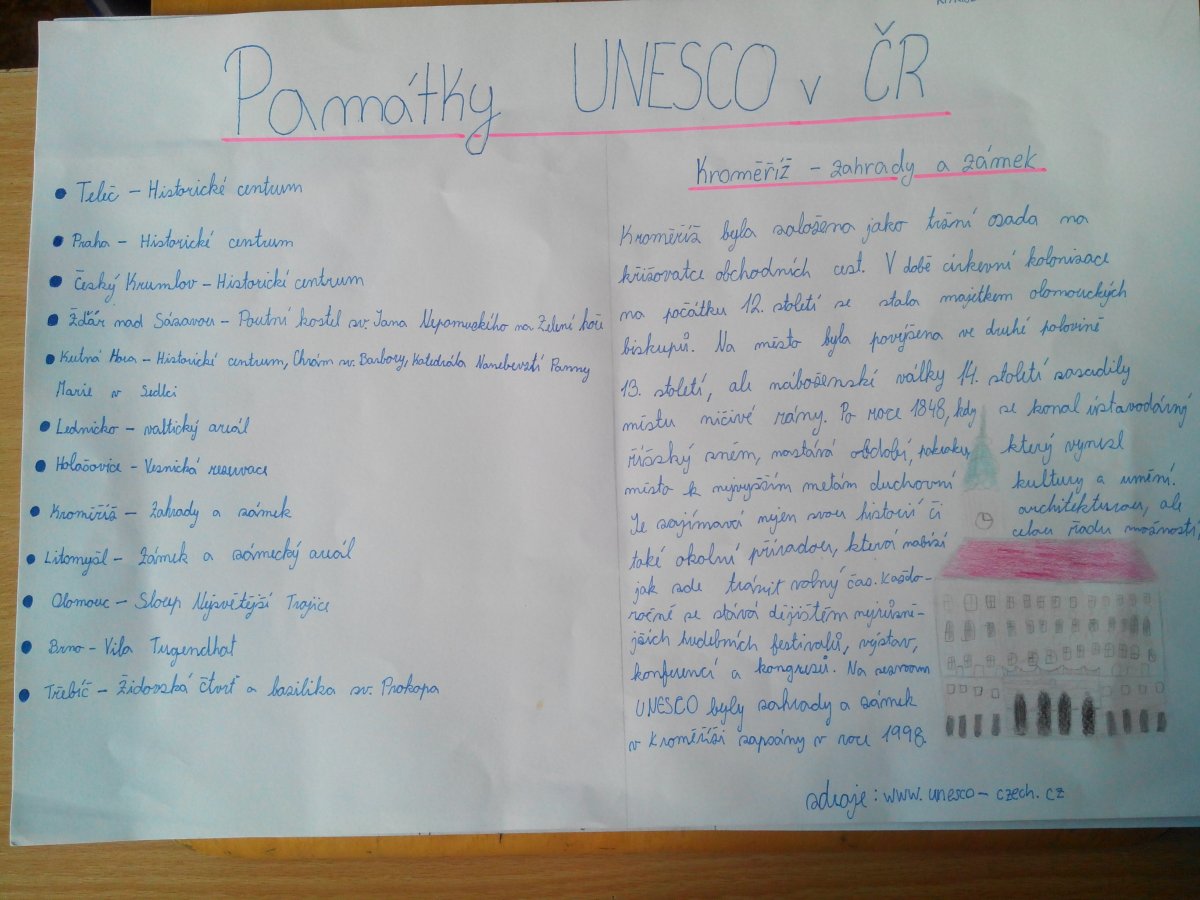 Památky UNESCO v ČR
Telč – Historické centrum
Praha – Historické centrum
Český Krumlov – Historické centrum
Žďár nad Sázavou – Poutní kostel sv. Jana Nepomuckého na Zelené hoře
Kutná Hora – Historické centrum, Chrám sv. Barbory, Katedrála Nanebevzetí Panny
Marie v Sedlci
Lednicko – valtický areál
Holašovice – Vesnická rezervace
Kroměříž – Zahrady a zámek
Litomyšl – Zámek a zámecký areál
Olomouc – Sloup Nejsvětější Trojice
Brno – Vila Tugendhat
Třebíč – Židovská čtvrť a bazilika sv. Prokopa
Kroměříž – zahrady a zámek
Kroměříž byla založena jako tržní osada na
křižovatce obchodních cest. V době církevní kolonizace
na počátku 12. století se stala majetkem olomouckých
biskupů. Na město byla povýšena ve druhé polovině
13. století, ale náboženské války 14. století zasadily
městu ničivé rány. Po roce 1848, kdy se konal ústavodárný
říšský sněm, nastává období, pokroku, který vynesl
město k nejvyšším metám duchovní kultury a umění.
Je zajímavá nejen svou historií či architekturou, ale
také okolní přírodou, která nabízí celou řadu možností,
jak zde trávit volný čas. Každo-
ročně se stává dějištěm nejrůzně-
jších hudebních festivalů, výstav,
konferencí a kongresů. Na seznam
UNESCO byly zahrady a zámek
v Kroměříži zapsány v roce 1998.
zdroje: www.unesco-czech.cz